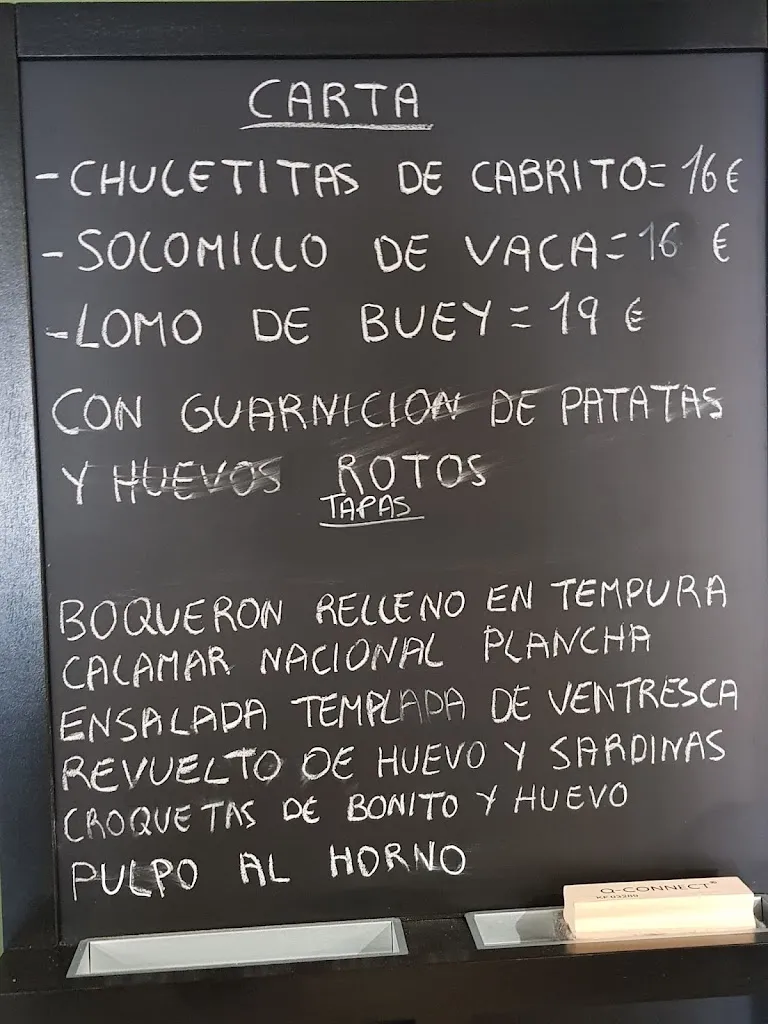 CARTA
- CHULETITAS DE CABRITO= 16€
- SOLOMILLO DE VACA= 16 €
- LOMO DE BUEY = 19 €
CON GUARNICION DE PATATAS
Y HUEVOS ROTOS
TAPAS
BOQUERON RELLENO EN TEMPURA
CALAMAR NACIONAL PLANCHA
ENSALADA TEMPLADA DE VENTRESCA
REVUELTO DE HUEVO Y SARDINAS
CROQUETAS DE BONITO Y HUEVO
PULPO AL HORNO
Q-CONNECT®